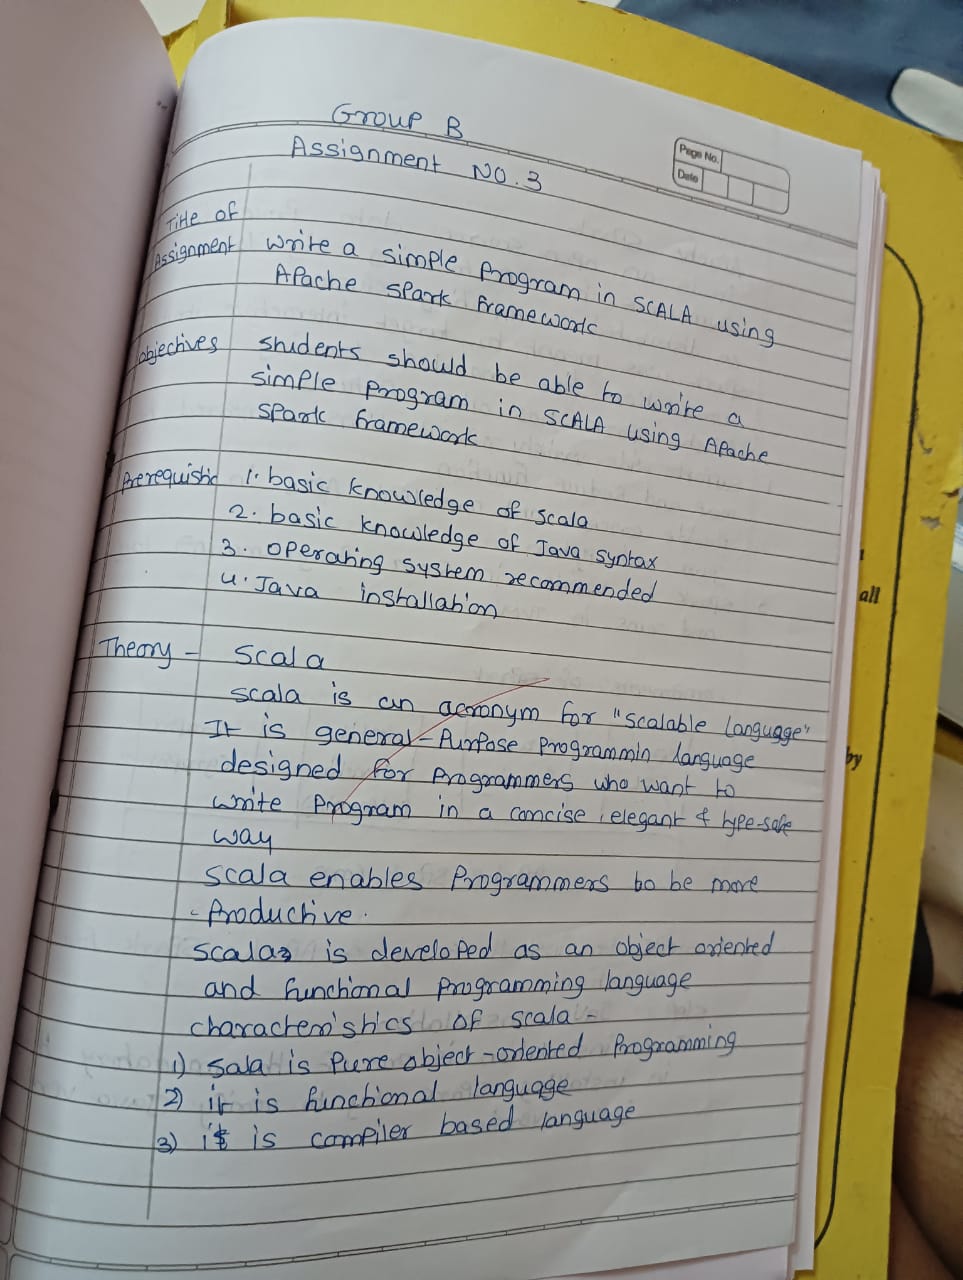 Group B
Assignment No. 3
Page No.
Date
Title of
Assignment
write a simple Program in SCALA using
Apache Spark Framework
objectives
students should be able to write a
simple program in SCALA using Apache
Spark framework
Prerequistic
1. basic knowledge of scala
2. basic knowledge of Java syntax
3. operating system recommended
4. Java installation
Theory - Scala
scala is an acronym for "scalable language"
It is general-Purpose Programmin language
designed for programmers who want to
write program in a concise, elegant & type-safe
way
scala enables Programmers to be more
Productive.
scala is developed as an object oriented
and functional programming language
characteristics of scala -
1) Sala is Pure object-oriented Programming
2) it is functional language
3) it is compiler based language
all
by